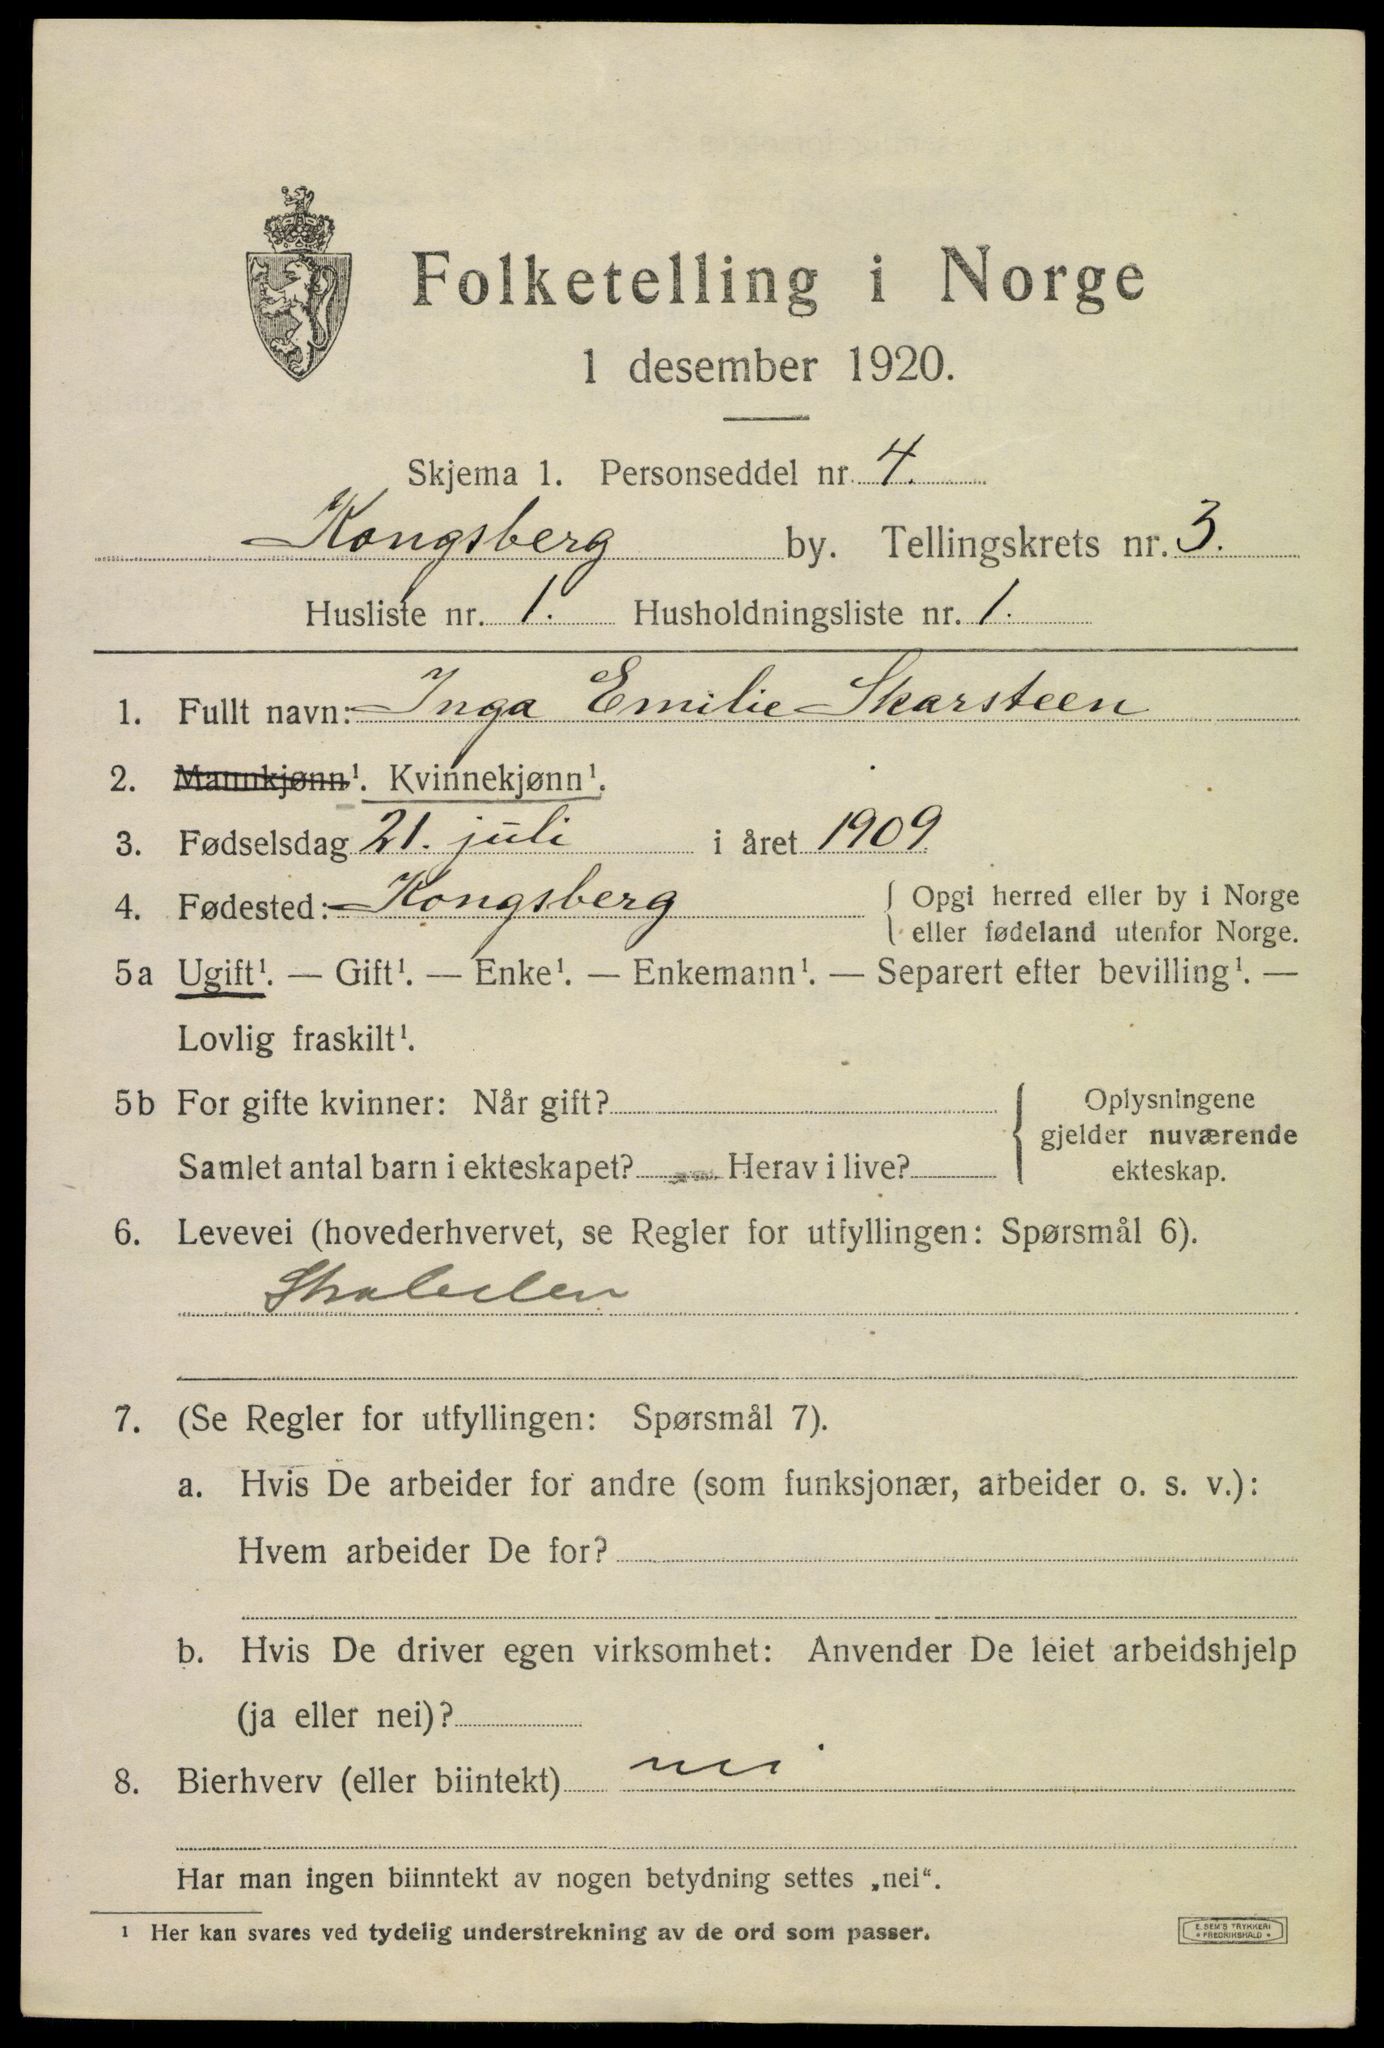 Folketelling i Norge
1 desember 1920.
Skjema 1. Personseddel nr. 4.
Kongsberg by. Tellingskrets nr. 3.
Husliste nr. 1. Husholdningsliste nr. 1.
1. Fullt navn: Inga Emilie Skarsteen
2. Mannkjønn¹. Kvinnekjønn¹.
3. Fødselsdag 21. juli i året 1909
4. Fødested: Kongsberg { Opgi herred eller by i Norge
eller fødeland utenfor Norge.
5a Ugift¹. — Gift¹. — Enke¹. — Enkemann¹. — Separert efter bevilling¹. —
Lovlig fraskilt¹.
5b For gifte kvinner: Når gift? { Oplysningene
gjelder nuværende
Samlet antal barn i ekteskapet? Herav i live? ekteskap.
6. Levevei (hovederhvervet, se Regler for utfyllingen: Spørsmål 6).
7. (Se Regler for utfyllingen: Spørsmål 7).
a. Hvis De arbeider for andre (som funksjonær, arbeider o. s. v.):
Hvem arbeider De for?
b. Hvis De driver egen virksomhet: Anvender De leiet arbeidshjelp
(ja eller nei)?
8. Bierhverv (eller biintekt) nei
Har man ingen biinntekt av nogen betydning settes „nei“.
¹ Her kan svares ved tydelig understrekning av de ord som passer.
E. SEM'S TRYKKERI
• FREDRIKSHALD •